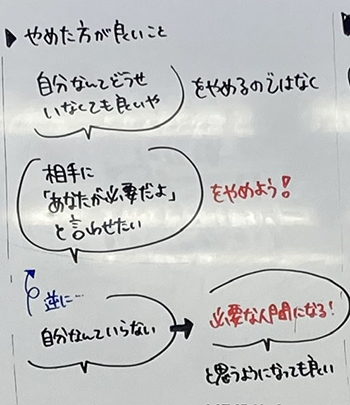 ▶ やめた方が良いこと
自分なんてどうせ
いなくても良いや
をやめるのではなく
相手に
「あなたが必要だよ」
と言わせたい
をやめよう!
逆に…
自分なんていらない
➡
必要な人間になる!
と思うようになっても良い